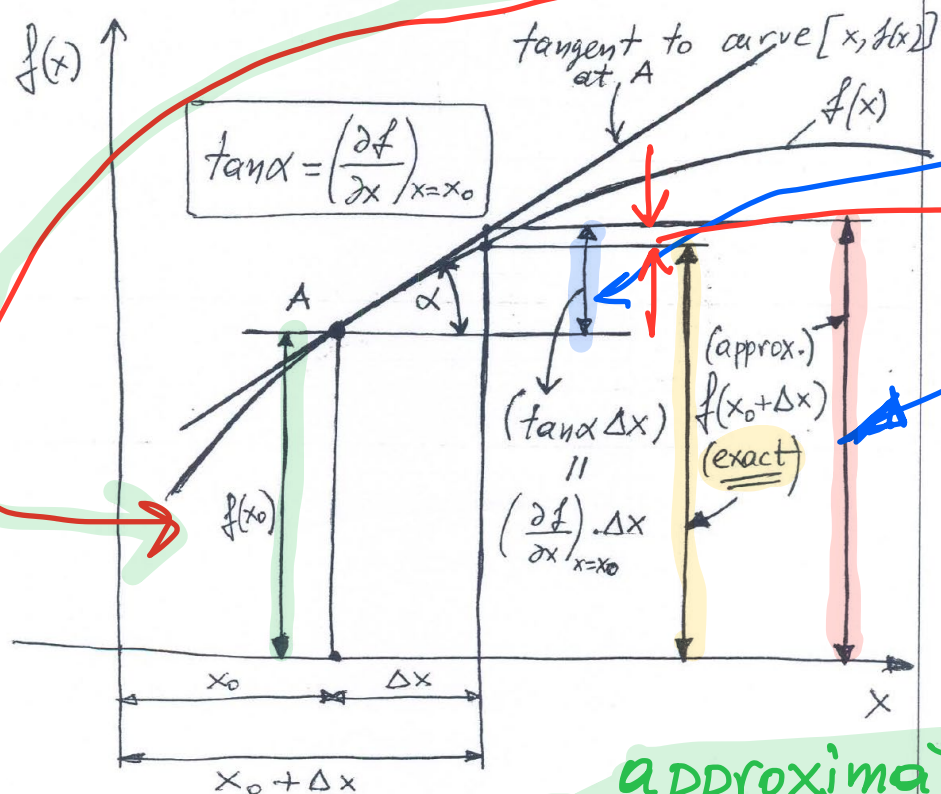 f(x)
tangent to curve [x, f(x)]
at A
f(x)
tanα = (∂f/∂x)x=x₀
A
α
(approx.)
f(x₀+Δx)
(exact)
(tanα Δx)
=
(∂f/∂x)x=x₀ · Δx
f(x₀)
x₀
Δx
x
x₀ + Δx
approxima